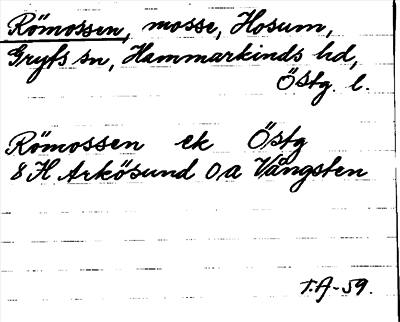 Römossen, mosse, Hosum,
Gryts sn, Hammarkinds hd,
Östg. l.
Römossen ek Östg
8 H Arkösund 0,a Vångsten
T.A-59.